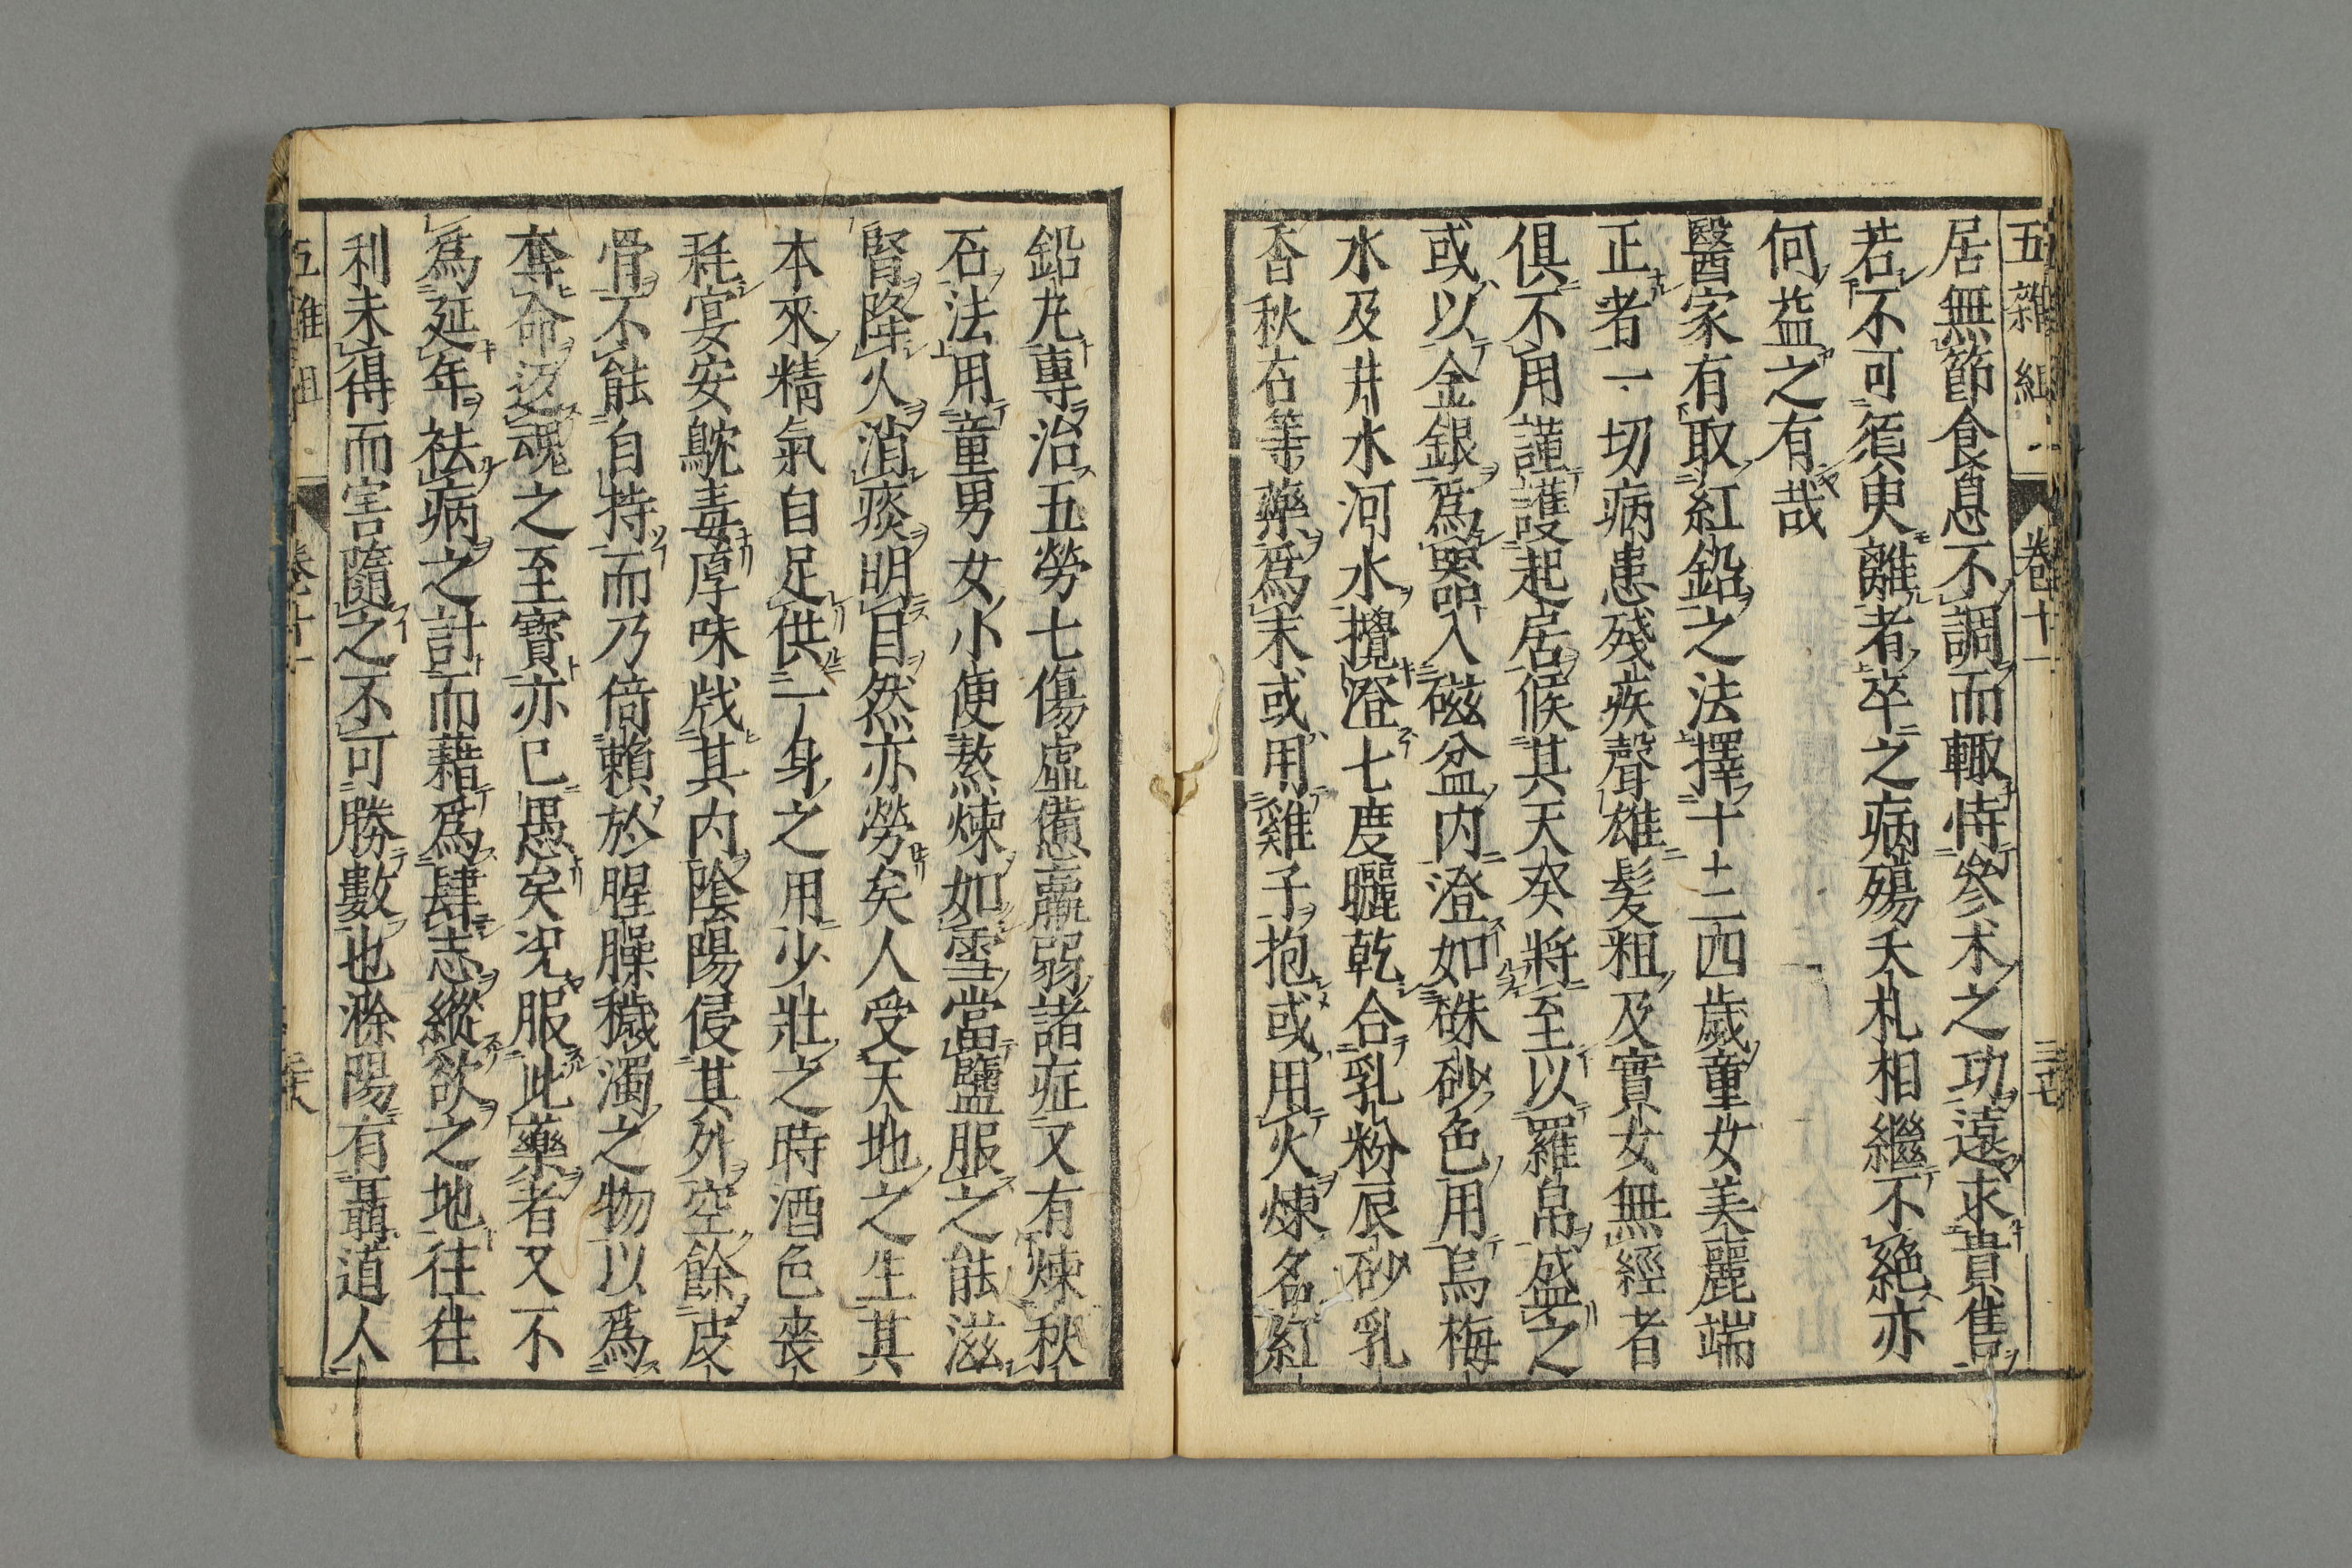 五雜組
卷十一
三十七
居無節食息不調而輙恃參朮之功遠求貴售
若不可須臾離者卒之病殤夭札相繼不絶亦
何益之有哉
醫家有取紅鉛之法擇十十三四歲童女美麗端
正者一切病患殘疾聲雄髮粗及實女無經者
俱不用謹護起居候其天癸將至以羅帛盛之
或以金銀爲器入磁盆内澄如硃砂色用烏梅
水及井水河水攪澄七度曬乾合乳粉辰砂乳
香秋石等藥爲末或用雞子抱或用火煉名紅
鉛丸專治五勞七傷虛憊羸弱諸症又有煉秋
石法用童男女小便熬煉如雪當鹽服之能滋
腎降火消痰明目然亦勞矣人受天地之生其
本來精氣自足供一身之用少壯之時酒色喪
耗宴安鴆毒厚味戕其内陰陽侵其外空餘皮
骨不能自持而乃倚賴於腥臊穢濁之物以爲
奪命返魂之至寳亦已愚矣况服此藥者又不
爲延年祛病之計而藉爲肆志縱欲之地往往
利未得而害隨之不可勝數也滁陽有聶道人
五雜組
卷十一
三十八